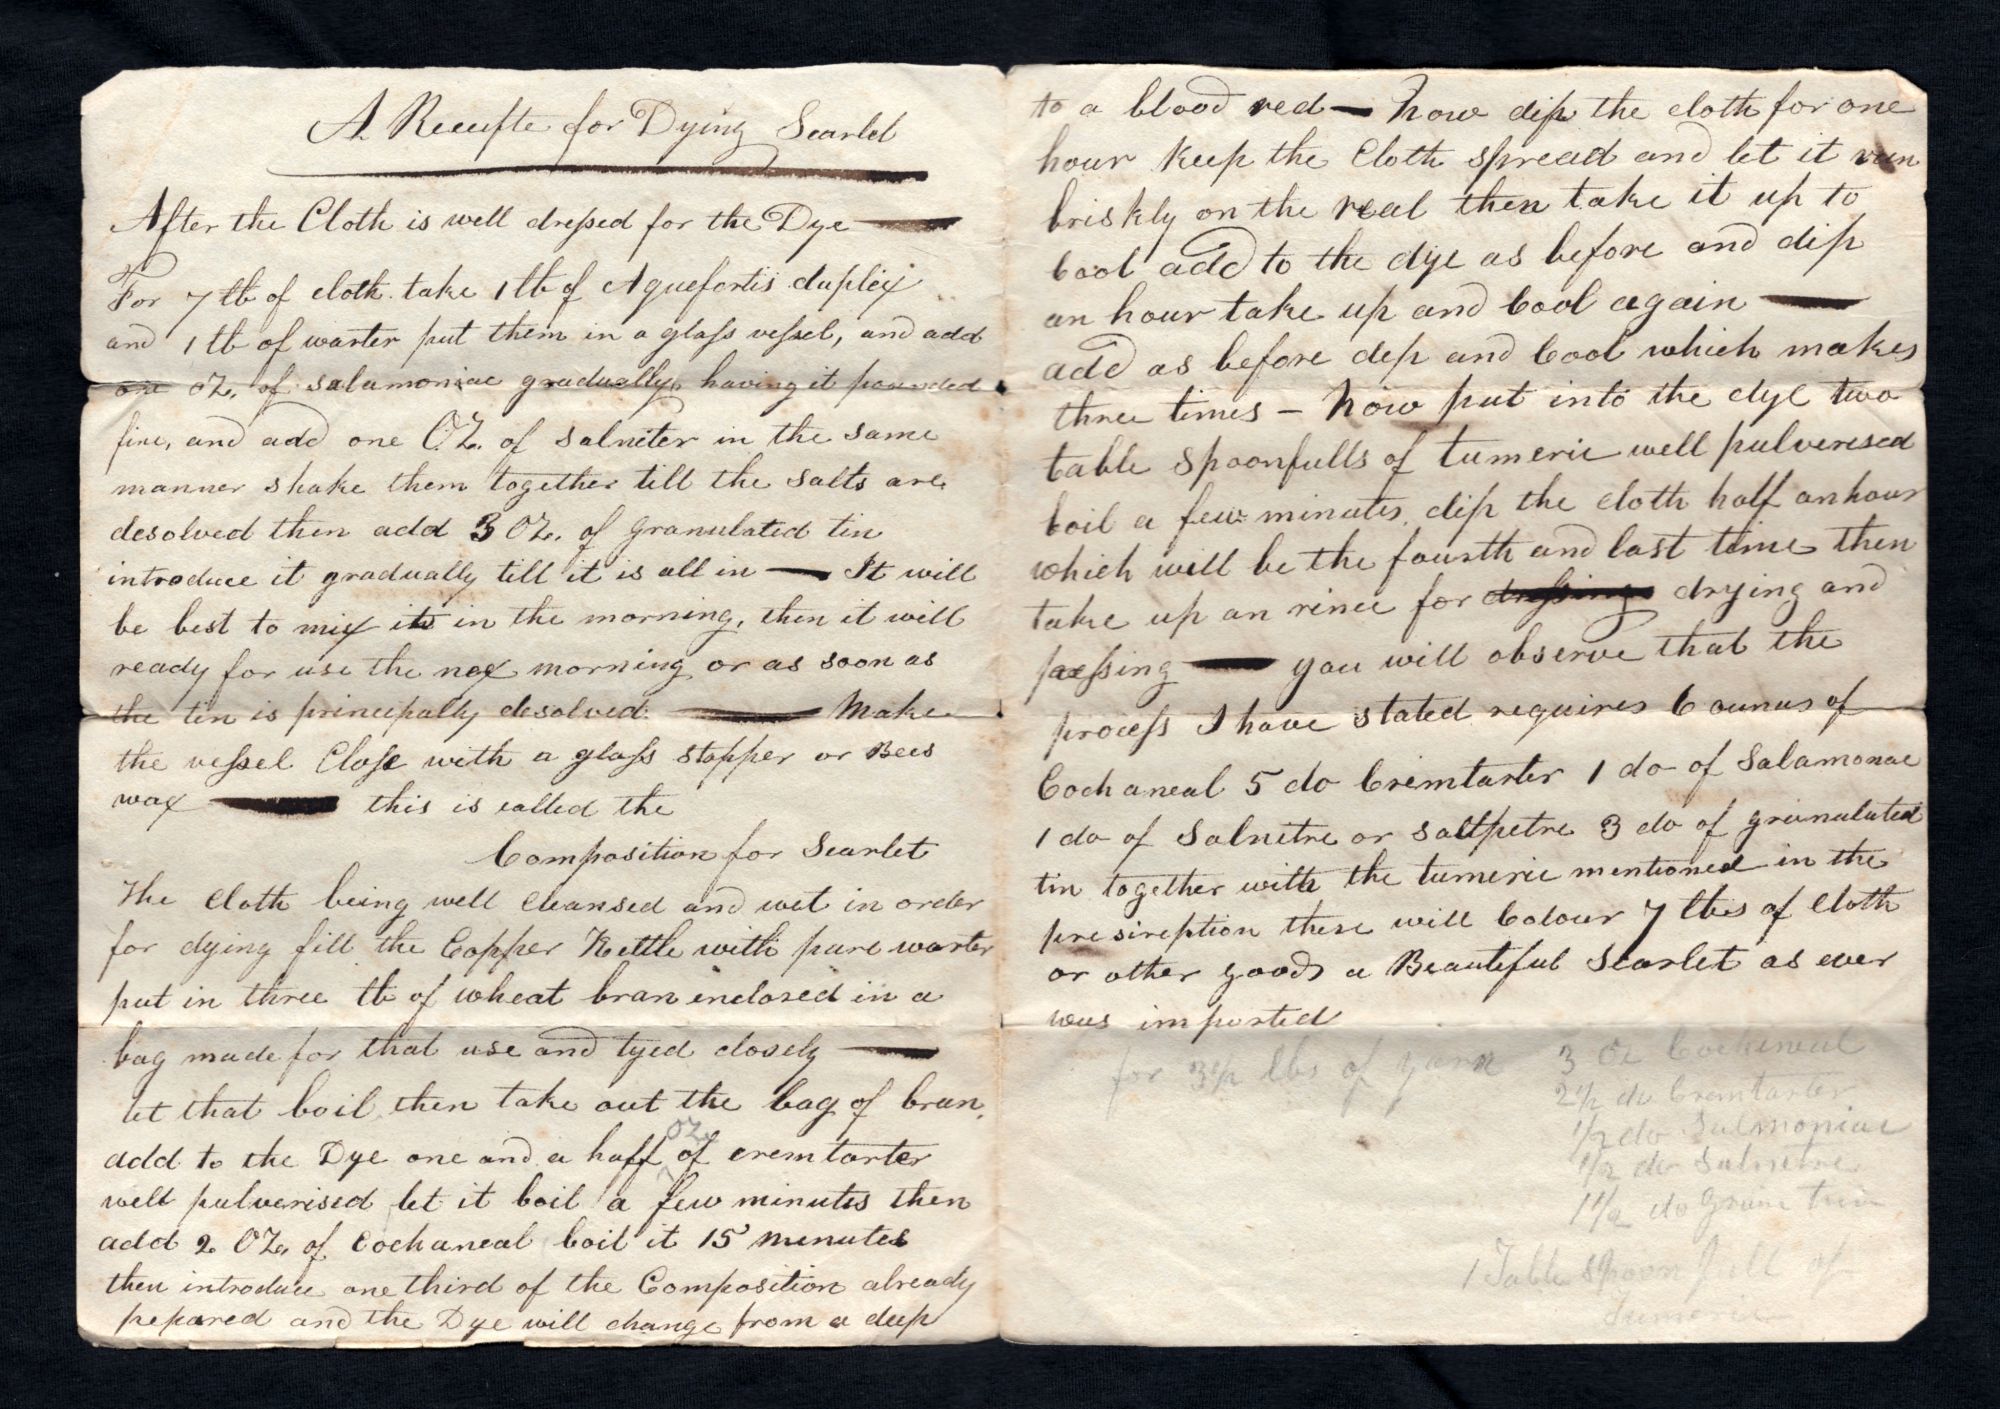 A Receipte for Dying Scarlet
After the Cloth is well dressed for the Dye —
For 7 lb of cloth take 1 lb of Aquefortis duplex
and 1 lb of warter put them in a glass vessel, and add
one oz. of salamoniac gradually, having it pounded
fine, and add one OZ. of salniter in the same
manner shake them together till the salts are
desolved then add 3 OZ. of granulated tin
introduce it gradually till it is all in — It will
be best to mix it in the morning, then it will
ready for use the nex morning or as soon as
the tin is principally desolved — Make
the vessel Close with a glass stopper or Bees
wax — this is called the
Composition for Scarlet
The Cloth being well Cleansed and wet in order
for dying fill the Copper Kettle with pure warter
put in three lb of wheat bran inclosed in a
bag made for that use and tyed closely —
let that boil then take out the bag of bran,
add to the Dye one and a haff oz of cremtarter
well pulverised let it boil a few minutes then
add 2 OZ. of Cochaneal boil it 15 minutes
then introduce one third of the Composition already
pepared and the Dye will change from a deep
to a blood red — Now dip the cloth for one
hour keep the Cloth spread and let it run
briskly on the real then take it up to
Cool add to the dye as before and dip
an hour take up and Cool again —
add as before dep and Cool which makes
three times — Now put into the dye two
table spoonfulls of tumeric well pulverised
boil a few minutes, dip the cloth half an hour
which will be the fourth and last time then
take up an rince for dressing drying and
pessing — you will observe that the
process I have stated requires 6 ounus of
Cochaneal 5 do Cremtarter 1 do of Salamonac
1 do of Salnitre or saltpetre 3 do of granulated
tin together with the tumeric mentioned in the
presireption these will Colour 7 lbs of Cloth
or other goods a Beautiful Scarlet as ever
was imported
for 3 1/2 lbs of yarn 3 Oz Cochineal
2 1/2 do Cremtarter
1/2 do Salmoniac
1/2 do Salnetre
1 1/2 do Gran tin
1 Table spoon full of
Tumeric